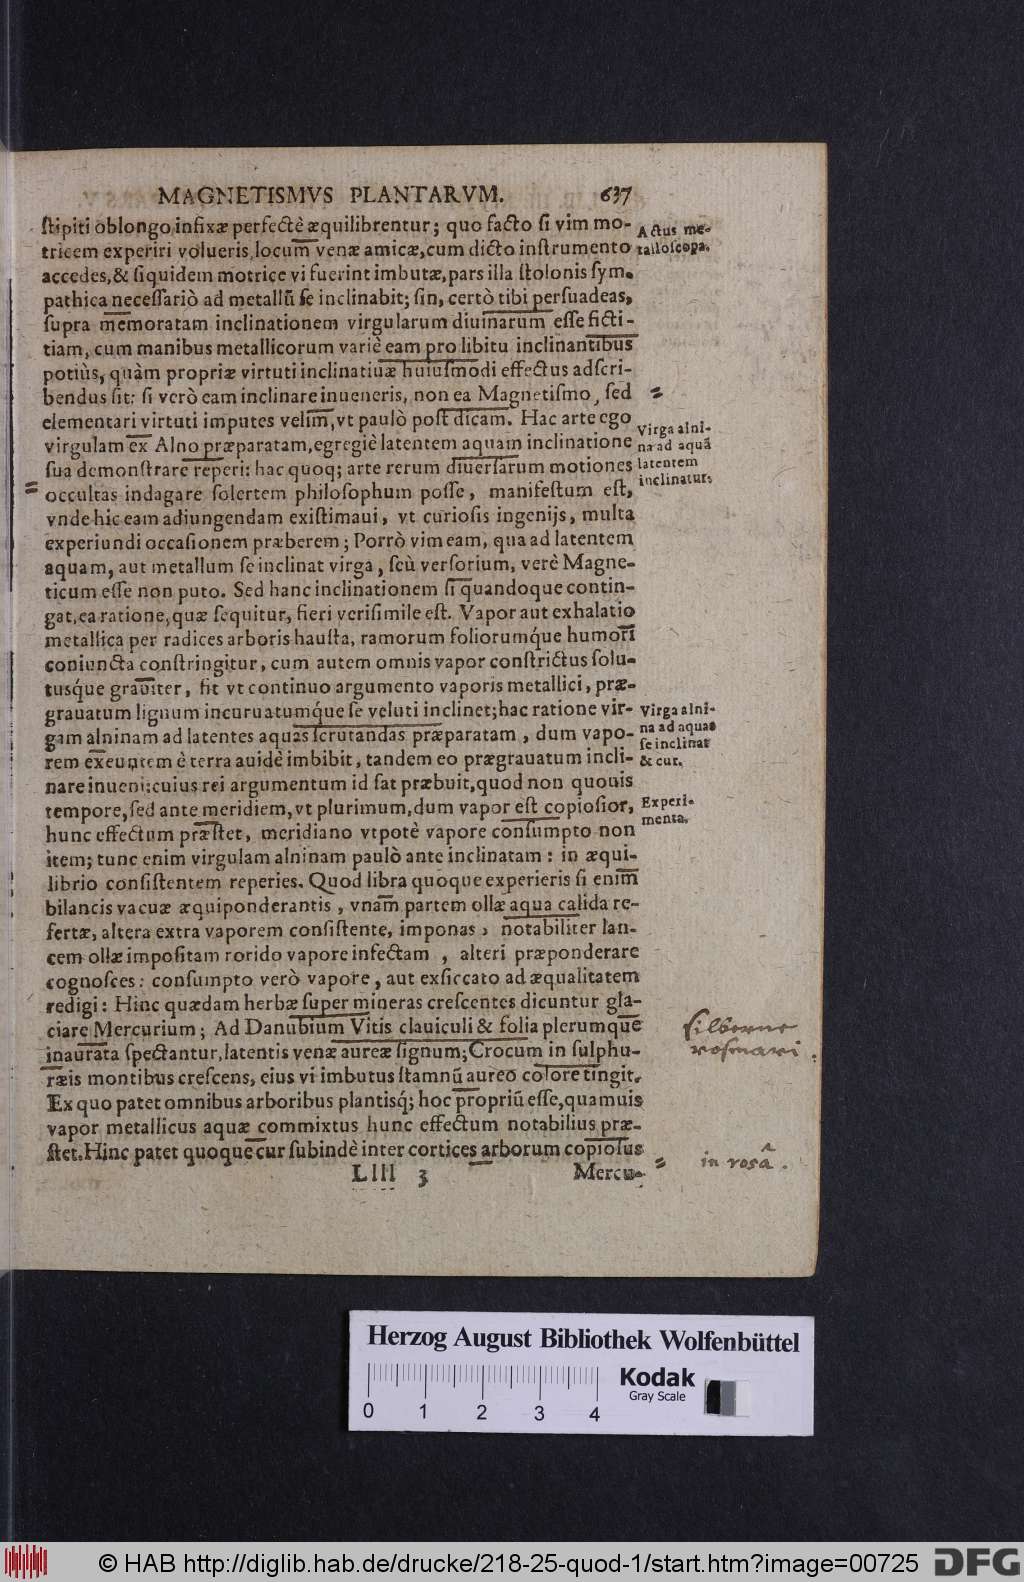 MAGNETISMVS PLANTARVM. 637
ſtipiti oblongo infixæ perfectè æquilibrentur; quo facto ſi vim mo-
tricem experiri volueris, locum venæ amicæ, cum dicto inſtrumento
accedes, & ſiquidem motrice vi fuerint imbutæ, pars illa ſtolonis ſym-
pathica neceſſariò ad metallũ ſe inclinabit; ſin, certò tibi perſuadeas,
ſupra memoratam inclinationem virgularum diuinarum eſſe ficti-
tiam, cum manibus metallicorum variè eam pro libitu inclinantibus
potiùs, quàm propriæ virtuti inclinatiuæ huiuſmodi effectus adſcri-
bendus ſit: ſi verò eam inclinare inueneris, non ea Magnetiſmo, ſed
elementari virtuti imputes velim, vt paulò poſt dicam. Hac arte ego
virgulam ex Alno præparatam, egregiè latentem aquam inclinatione
ſua demonſtrare reperi: hac quoq; arte rerum diuerſarum motiones
occultas indagare ſolertem philoſophum poſſe, manifeſtum eſt,
vnde hic eam adiungendam exiſtimaui, vt curioſis ingenijs, multa
experiundi occaſionem præberem; Porrò vim eam, qua ad latentem
aquam, aut metallum ſe inclinat virga, ſeù verſorium, verè Magne-
ticum eſſe non puto. Sed hanc inclinationem ſi quandoque contin-
gat, ea ratione, quæ ſequitur, fieri veriſimile eſt. Vapor aut exhalatio
metallica per radices arboris hauſta, ramorum foliorumq́ue humori
coniuncta conſtringitur, cum autem omnis vapor conſtrictus ſolu-
tusq́ue grauiter, fit vt continuo argumento vaporis metallici, præ-
grauatum lignum incuruatumq́ue ſe veluti inclinet; hac ratione vir-
gam alninam ad latentes aquas ſcrutandas præparatam, dum vapo-
rem exeuntem è terra auidè imbibit, tandem eo prægrauatum incli-
nare inueni: cuius rei argumentum id ſat præbuit, quod non quouis
tempore, ſed ante meridiem, vt plurimum, dum vapor eſt copioſior,
hunc effectum præſtet, meridiano vtpotè vapore conſumpto non
item; tunc enim virgulam alninam paulò ante inclinatam: in æqui-
librio conſiſtentem reperies. Quod libra quoque experieris ſi enim
bilancis vacuæ æquiponderantis, vnam partem ollæ aqua calida re-
fertæ, altera extra vaporem conſiſtente, imponas, notabiliter lan-
cem ollæ impoſitam rorido vapore infectam, alteri præponderare
cognoſces: conſumpto verò vapore, aut exſiccato ad æqualitatem
redigi: Hinc quædam herbæ ſuper mineras creſcentes dicuntur gla-
ciare Mercurium; Ad Danubium Vitis clauiculi & folia plerumque
inaurata ſpectantur, latentis venæ aureæ ſignum; Crocum in ſulphu-
ræis montibus creſcens, eius vi imbutus ſtamnũ aureo colore tingit.
Ex quo patet omnibus arboribus plantisq́; hoc propriũ eſſe, quamuis
vapor metallicus aquæ commixtus hunc effectum notabilius præ-
ſtet. Hinc patet quoque cur ſubindè inter cortices arborum copioſus
Llll 3 Mercu-
Actus me-
talloſcopa.
Virga alni-
na ad aquã
latentem
inclinatur.
Virga alni-
na ad aquas
ſe inclinat
& cur.
Experi-
menta.
ſilberne
rosmari
in rosâ.
Herzog August Bibliothek Wolfenbüttel
Kodak
Gray Scale
0 1 2 3 4
© HAB http://diglib.hab.de/drucke/218-25-quod-1/start.htm?image=00725
DFG